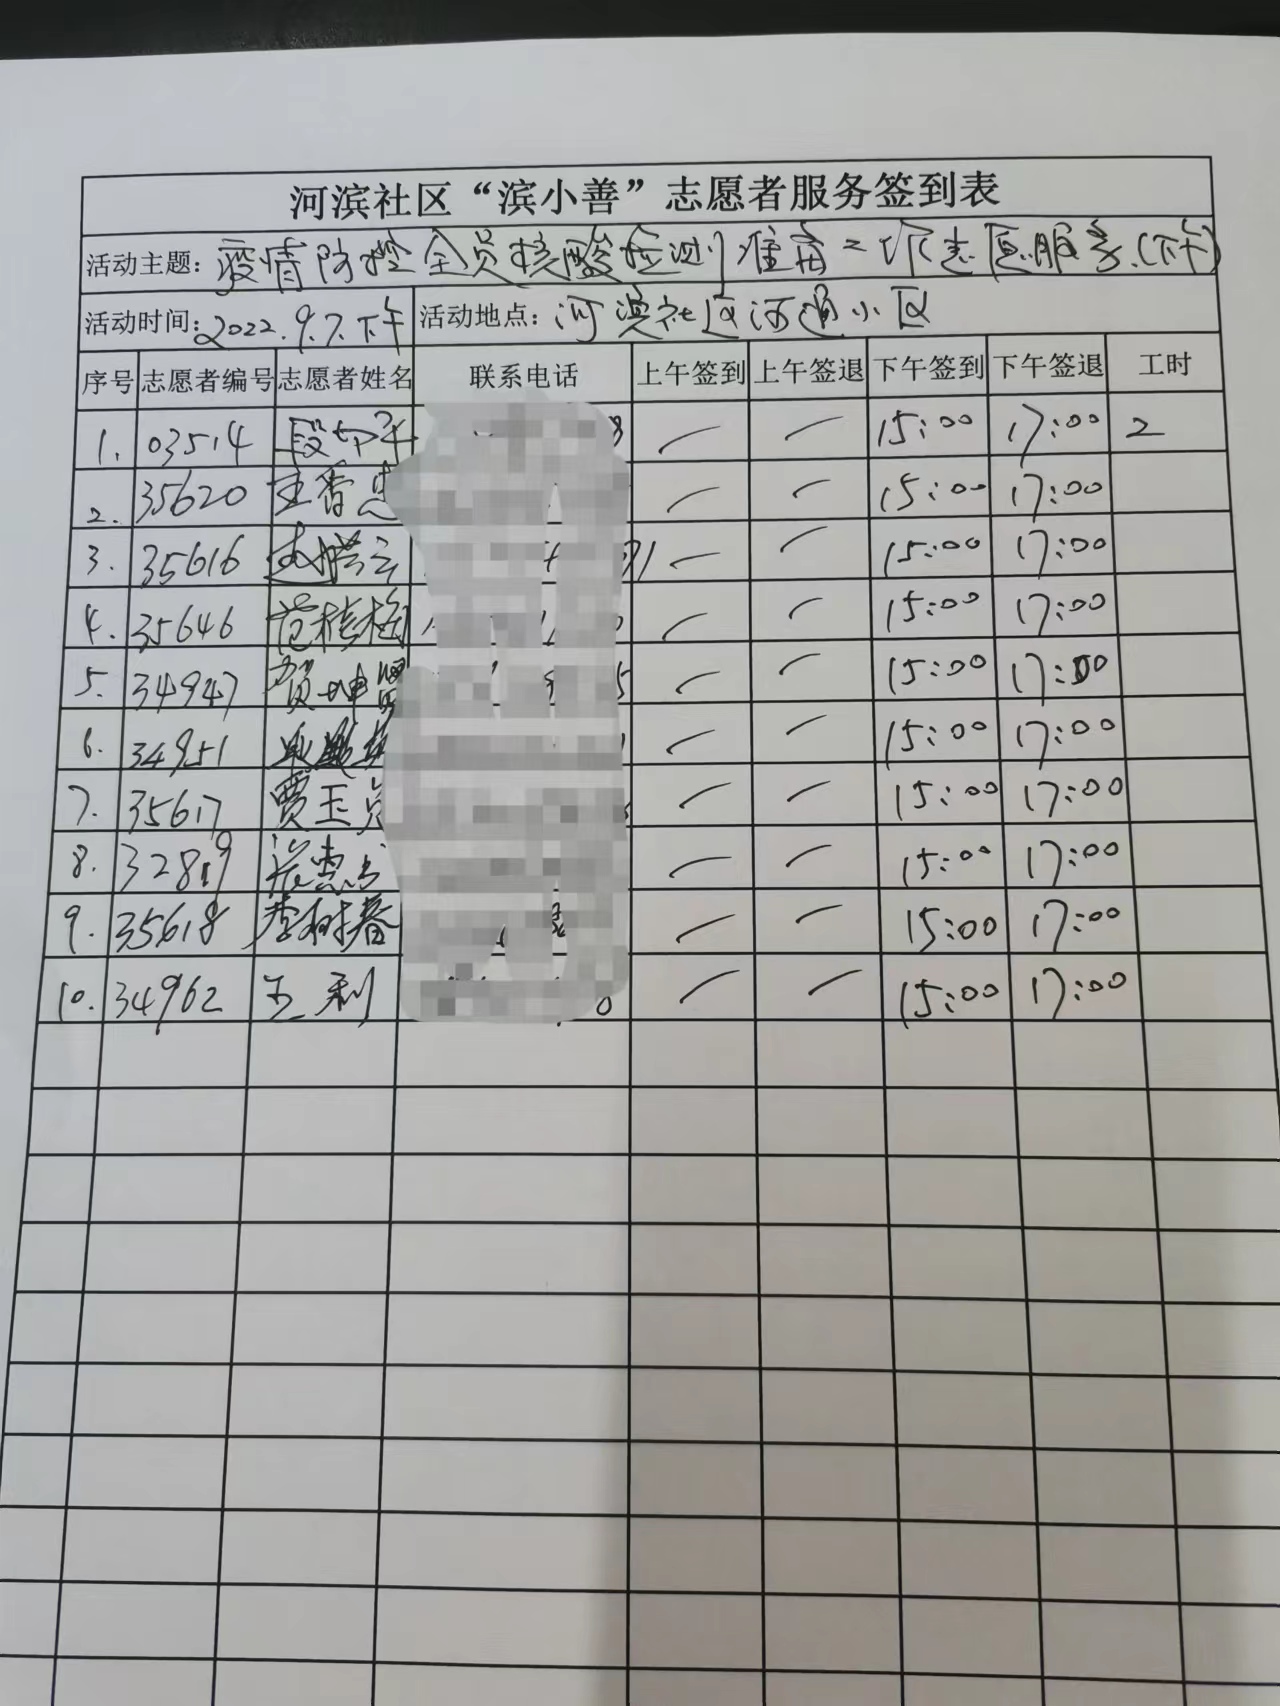 河滨社区“滨小善”志愿者服务签到表
活动主题：疫情防控全员核酸检测准备工作志愿服务（下午）
活动时间：2022.9.7.下午 活动地点：河滨社区河通小区
序号 志愿者编号 志愿者姓名 联系电话 上午签到 上午签退 下午签到 下午签退 工时
1. 03514 段 8 — — 15:00 17:00 2
2. 35620 王香 — — 15:00 17:00
3. 35616 71 — — 15:00 17:00
4. 35646 范桂梅 — — 15:00 17:00
5. 34947 贺坤 5 — — 15:00 17:00
6. 34951 — — 15:00 17:00
7. 35617 贾玉 — — 15:00 17:00
8. 32819 惠 — — 15:00 17:00
9. 35618 李树春 — — 15:00 17:00
10. 34962 王利 0 — — 15:00 17:00